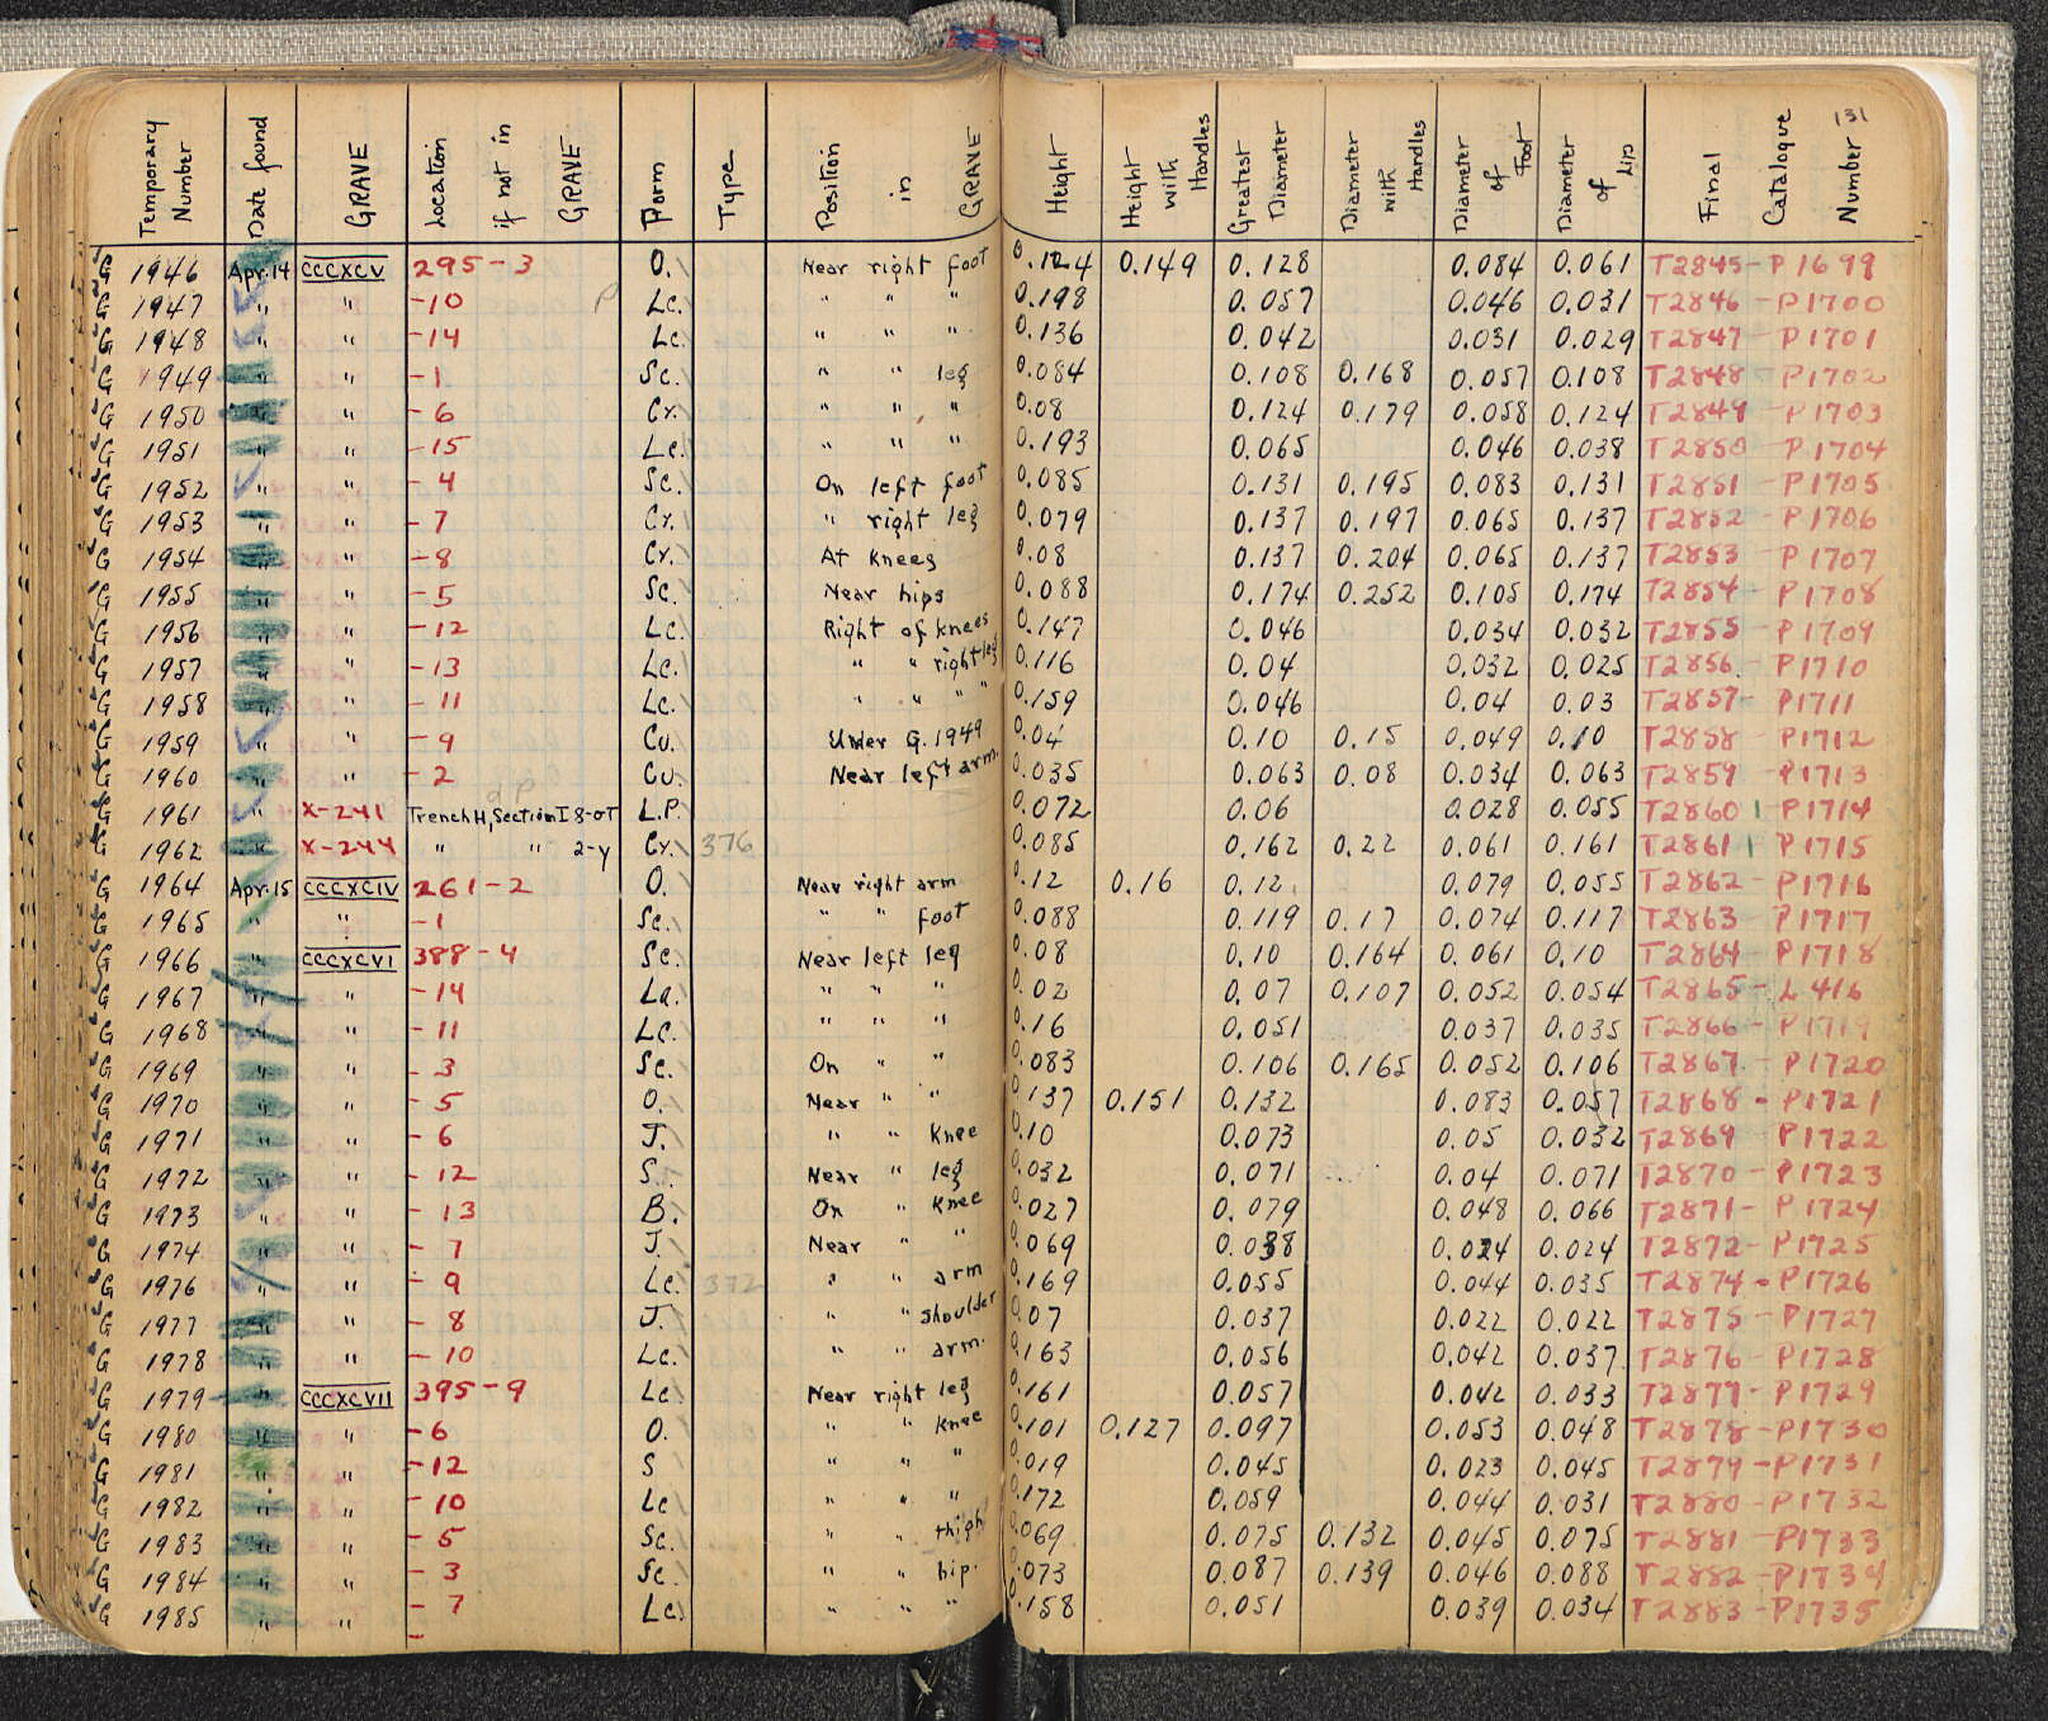 131
Temporary Number Date found GRAVE Location if not in GRAVE Form Type Position in GRAVE Height Height with Handles Greatest Diameter Diameter with Handles Diameter of Foot Diameter of Lip Final Catalogue Number
G 1946 Apr. 14 CCCXCV 295-3 O. Near right foot 0.124 0.149 0.128 0.084 0.061 T2845-P1699
G 1947 " " -10 P Lc. " " " 0.198 0.057 0.046 0.031 T2846-P1700
G 1948 " " -14 Lc. " " " 0.136 0.042 0.031 0.029 T2847-P1701
G 1949 " " -1 Sc. " " leg 0.084 0.108 0.168 0.057 0.108 T2848-P1702
G 1950 " " -6 Cr. " " " 0.08 0.124 0.179 0.058 0.124 T2849-P1703
G 1951 " " -15 Lc. " " " 0.193 0.065 0.046 0.038 T2850-P1704
G 1952 " " -4 Sc. On left foot 0.085 0.131 0.195 0.083 0.131 T2851-P1705
G 1953 " " -7 Cr. " right leg 0.079 0.137 0.197 0.065 0.137 T2852-P1706
G 1954 " " -8 Cr. At knees 0.08 0.137 0.204 0.065 0.137 T2853-P1707
G 1955 " " -5 Sc. Near hips 0.088 0.174 0.252 0.105 0.174 T2854-P1708
G 1956 " " -12 Lc. Right of knees 0.147 0.046 0.034 0.032 T2855-P1709
G 1957 " " -13 Lc. " " right leg 0.116 0.04 0.032 0.025 T2856-P1710
G 1958 " " -11 Lc. " " " " 0.159 0.046 0.04 0.03 T2857-P1711
G 1959 " " -9 Cu. Under G. 1949 0.04 0.10 0.15 0.049 0.10 T2858-P1712
G 1960 " " -2 Cu. Near left arm. 0.035 0.063 0.08 0.034 0.063 T2859-P1713
G 1961 " X-241 Trench H, Section I 8-oT L.P. 0.072 0.06 0.028 0.055 T2860 P1714
G 1962 " X-244 " " 2-y Cr. 376 0.085 0.162 0.22 0.061 0.161 T2861 P1715
G 1964 Apr. 15 CCCXCIV 261-2 O. Near right arm 0.12 0.16 0.12 0.079 0.055 T2862-P1716
G 1965 " " -1 Sc. " " foot 0.088 0.119 0.17 0.074 0.117 T2863-P1717
G 1966 " CCCXCVI 388-4 Sc. Near left leg 0.08 0.10 0.164 0.061 0.10 T2864-P1718
G 1967 " " -14 La. " " " 0.02 0.07 0.107 0.052 0.054 T2865-L 416
G 1968 " " -11 Lc. " " " 0.16 0.051 0.037 0.035 T2866-P1719
G 1969 " " -3 Sc. On " " 0.083 0.106 0.165 0.052 0.106 T2867-P1720
G 1970 " " -5 O. Near " " 0.137 0.151 0.132 0.083 0.057 T2868-P1721
G 1971 " " -6 J. " " Knee 0.10 0.073 0.05 0.032 T2869-P1722
G 1972 " " -12 S. Near " leg 0.032 0.071 0.04 0.071 T2870-P1723
G 1973 " " -13 B. On " Knee 0.027 0.079 0.048 0.066 T2871-P1724
G 1974 " " -7 J. Near " " 0.069 0.038 0.024 0.024 T2872-P1725
G 1976 " " -9 Lc. 372 " " arm 0.169 0.055 0.044 0.035 T2874-P1726
G 1977 " " -8 J. " " Shoulder 0.07 0.037 0.022 0.022 T2875-P1727
G 1978 " " -10 Lc. " " arm. 0.163 0.056 0.042 0.037 T2876-P1728
G 1979 " CCCXCVII 395-9 Lc Near right leg 0.161 0.057 0.042 0.033 T2877-P1729
G 1980 " " -6 O. " " Knee 0.101 0.127 0.097 0.053 0.048 T2878-P1730
G 1981 " " -12 S " " " 0.019 0.045 0.023 0.045 T2879-P1731
G 1982 " " -10 Lc " " " 0.172 0.059 0.044 0.031 T2880-P1732
G 1983 " " -5 Sc. " " thigh 0.069 0.075 0.132 0.045 0.075 T2881-P1733
G 1984 " " -3 Sc. " " hip. 0.073 0.087 0.139 0.046 0.088 T2882-P1734
G 1985 " " -7 Lc. " " " 0.158 0.051 0.039 0.034 T2883-P1735